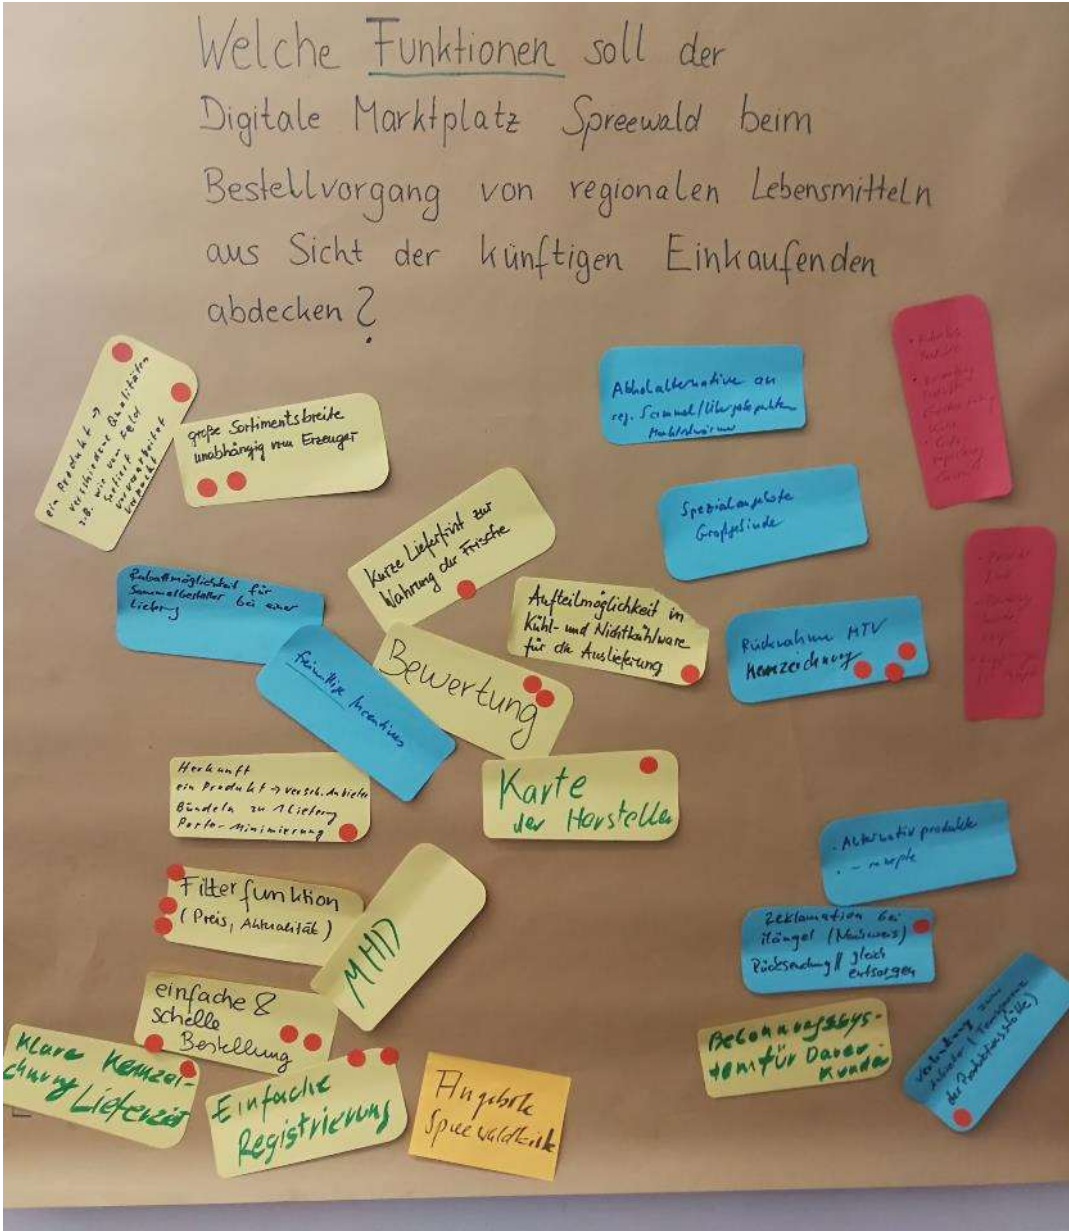 Welche Funktionen soll der
Digitale Marktplatz Spreewald beim
Bestellvorgang von regionalen Lebensmitteln
aus Sicht der künftigen Einkaufenden
abdecken?
ein Produkt →
verschiedene Qualitäten
z.B. wie vom Feld
sortiert
vorverarbeitet
verpackt
große Sortimentsbreite
unabhängig vom Erzeuger
Abholalternative an
reg. Sammel/Übergabepunkten
Spezialangebote
Großgebinde
Kurze Lieferfrist zur
Wahrung der Frische
Rabattmöglichkeit für
Sammelbesteller bei einer
Lieferung
Aufteilmöglichkeit in
Kühl- und Nichtkühlware
für die Auslieferung
Rücknahme MTV
Kennzeichnung
freiwillige Incentives
Bewertung
Herkunft
ein Produkt → versch. Anbieter
Bündeln zu 1 Lieferung
Porto-Minimierung
Karte
der Hersteller
- Alternativprodukte
- rezepte
Filterfunktion
(Preis, Aktualität)
MHD
Reklamation bei
Mängel (Nachweis)
Rücksendung // gleich
entsorgen
einfache &
schelle
Bestellung
Belohnungssys-
tem für Dauer-
Kunden
Verbindung zum
Anbieter (Transparenz
der Produktionsstätte)
Klare Kennzei-
chnung Lieferzeit
Einfache
Registrierung
Angebote